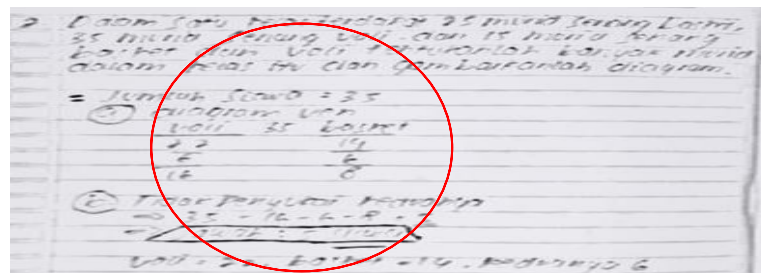 2 Dalam satu kelas terdapat 25 murid senang basket,
35 murid senang voli dan 15 murid senang
basket dan voli tentukanlah banyak murid
dalam kelas itu dan gambarkanlah diagram.
= Jumlah siswa = 35
diagram ven
voli 35 basket
22 14
6 6
16 8
Tidak
=> 35 - 16 - 6 - 8 =
=>
voli = 22, basket = 14, keduanya 6